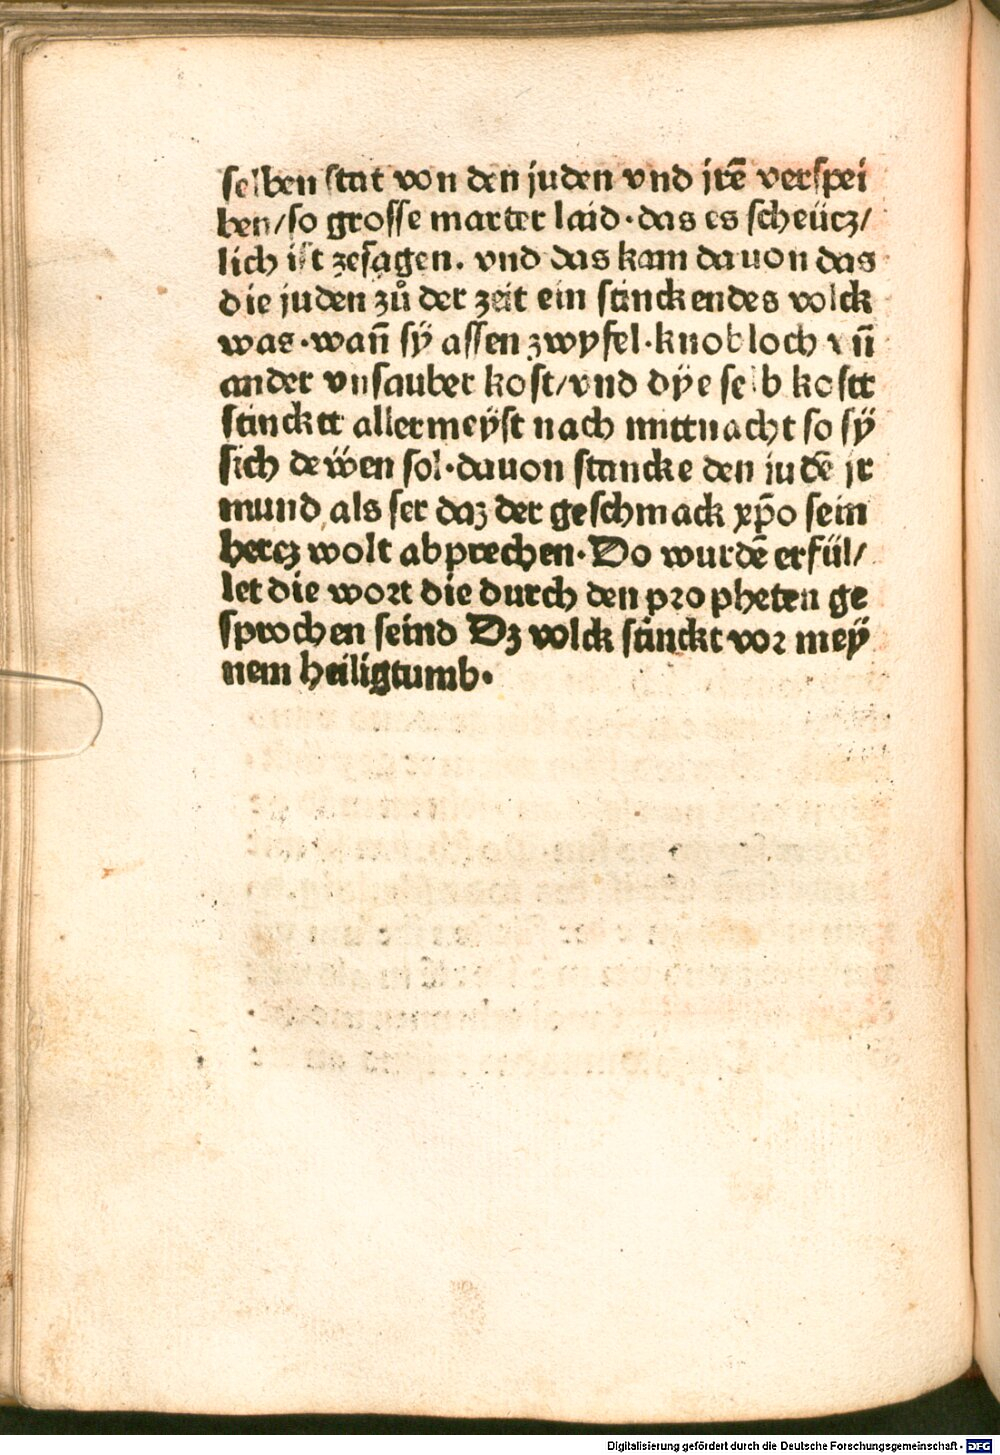 selben stat von den juden vnd jrē verspei
ben/so grosse marter laid·das es scheücz/
lich ist zesagen. vnd das kam dauon das
die juden zů der zeit ein stinckendes volck
was·wañ sÿ assen zwyfel·knobloch vñ
ander vnsauber kost/vnd dÿe selb kostt
stincktt allermeÿst nach mittnacht so sÿ
sich deẅen sol·dauon stancke den judē jr
mund als ser daz der geschmack xp̄o sein
hercz wolt abprechen·Do wurdē erfül/
let die wort die durch den propheten ge
sprochen seind Dz volck stinckt vor meÿ
nem heiligtumb·
Digitalisierung gefördert durch die Deutsche Forschungsgemeinschaft - DFG